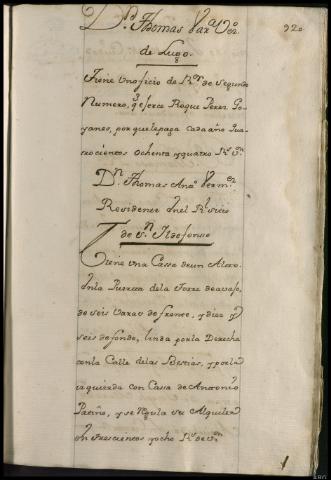 Dn. Thomas Varª Voz.
920
de Lugo.
Tiene un oficio de Rºr de Segundo
Numero, q̃ exerce Roque Perez Go
yanes, por que le paga cada año qua
trocientos ochenta y quatro Rs. Vn.
Dn. Thomas Antº Verm.ez
Residente Enel Rl. Sitio
de Sn. Ildefonso
Tiene una Cassa de un Alto
En la Puerta dela Torre de avajo,
de seis Varas de frente, y diez y
seis de fondo, linda por la Derecha
con la Calle delas Bestias, y por la
izquierda con Casa de Antonio
Patiño, y se Rgula su Alquiler
En trescientos y ocho Rs. de Vn.